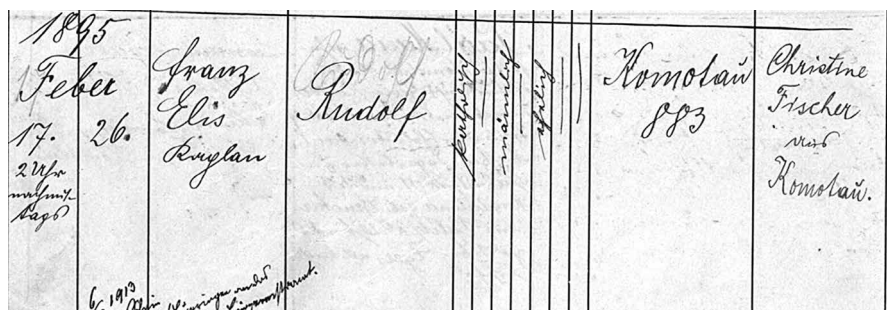 1895
Feber
17. 26.
2 Uhr
nachmit-
tags
Franz
Elis
Kaplan
Rudolf
katholisch
männlich
ehelich
Komotau
883
Christine
Fischer
aus
Komotau.
6/ 1913